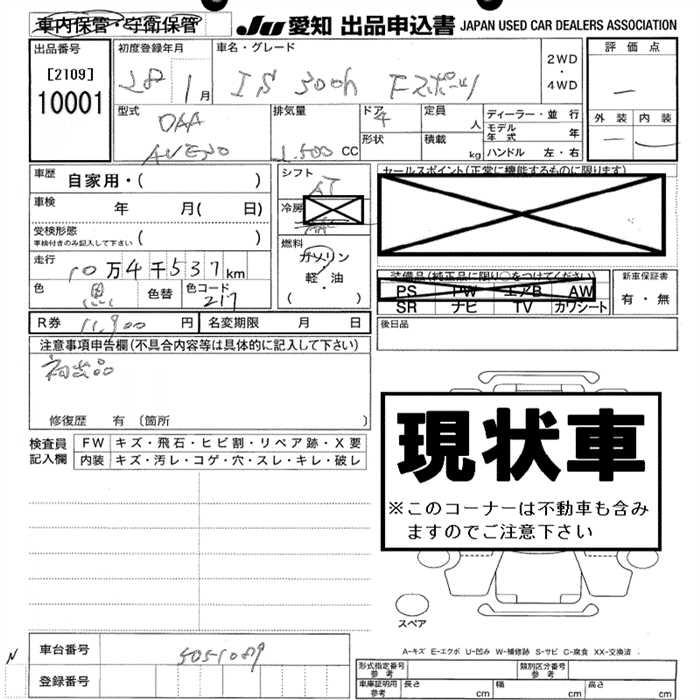 車内保管・守衛保管
JU 愛知 出品申込書 JAPAN USED CAR DEALERS ASSOCIATION
出品番号 初度登録年月 車名・グレード 2WD ・ 4WD 評価点
[2109] 28年 1月 IS 300h Fスポーツ
10001 外装 内装
型式 排気量 ドア 4 定員 人 ディーラー・並行
DAA 形状 積載 kg モデル年式 年
CC ハンドル 左・右
車歴 自家用・( ) シフト AT セールスポイント(正常に機能するものに限ります)
車検 年 月( 日) 冷房
受検形態 ( )
車検付きのみ記入して下さい
燃料 ガソリン
軽・油
( )
走行 10万4千537km 装備品(純正品に限り○をつけてください) 新車保証書
色 黒 色替 色コード 217 PS PW エアB AW 有・無
SR ナビ TV カワシート
R券 11,900 円 名変期限 月 日 後日品
注意事項申告欄(不具合内容等は具体的に記入して下さい)
初出品
修復歴 有 〔箇所 〕
現状車
※このコーナーは不動車も含み
ますのでご注意下さい
検査員記入欄 FW キズ・飛石・ヒビ割・リペア跡・X要
内装 キズ・汚レ・コゲ・穴・スレ・キレ・破レ
スペア
A-キズ E-エクボ U-凹み W-補修跡 S-サビ C-腐食 XX-交換済
N 車台番号 5051089
登録番号
形式指定番号 参考 類別区分番号 参考
車庫証明用 参考 長さ cm 幅 cm 高さ cm